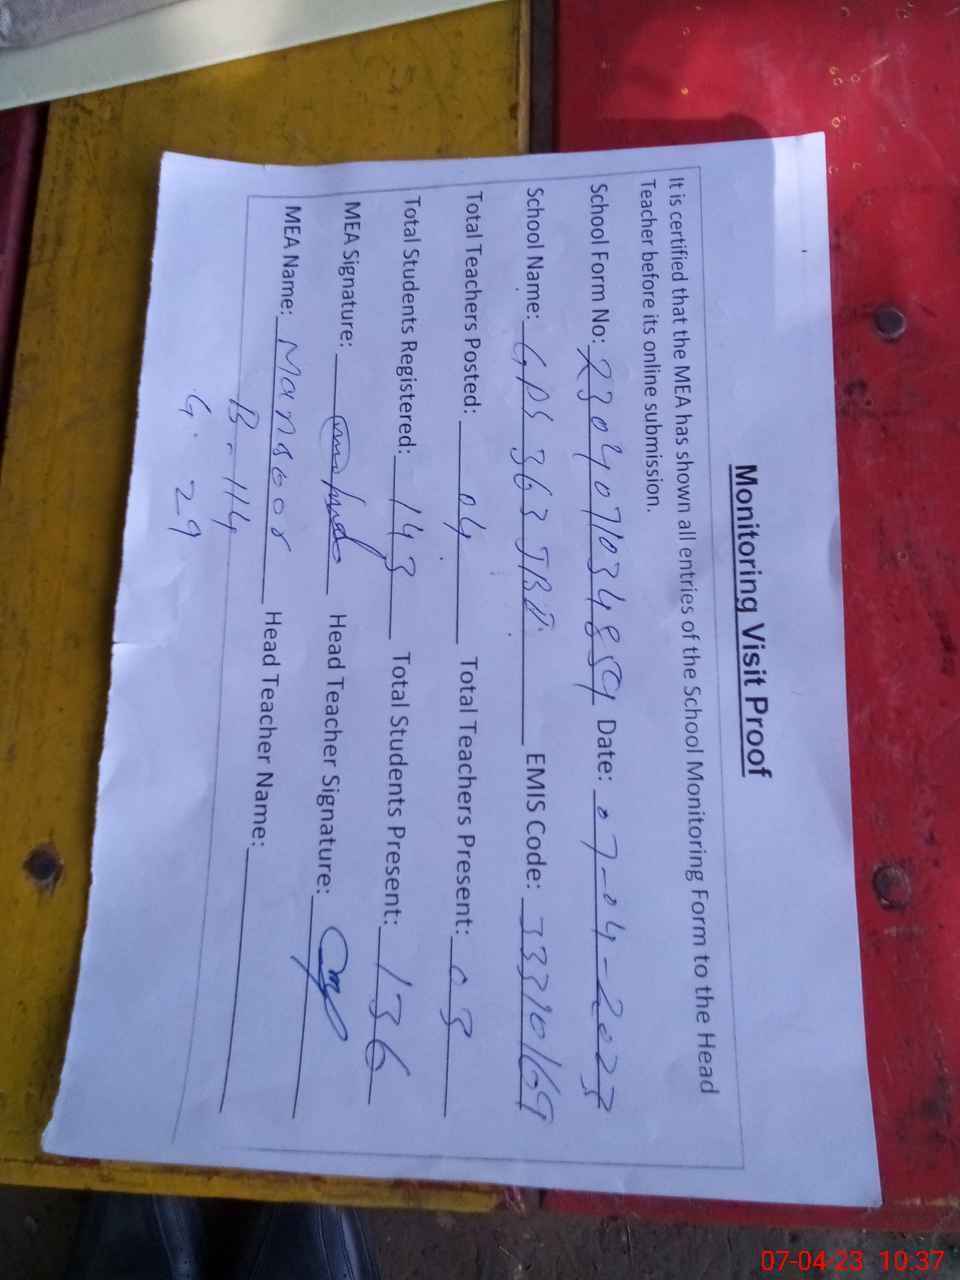 Monitoring Visit Proof
It is certified that the MEA has shown all entries of the School Monitoring Form to the Head
Teacher before its online submission.
School Form No: 230407034859 Date: 07-04-2023
School Name: GPS 363 JBD. EMIS Code: 33310169
Total Teachers Posted: 04 Total Teachers Present: 03
Total Students Registered: 143 Total Students Present: 136
MEA Signature: Head Teacher Signature:
MEA Name: Mansoor Head Teacher Name:
B - 114
G. 29
07-04-23 10:37